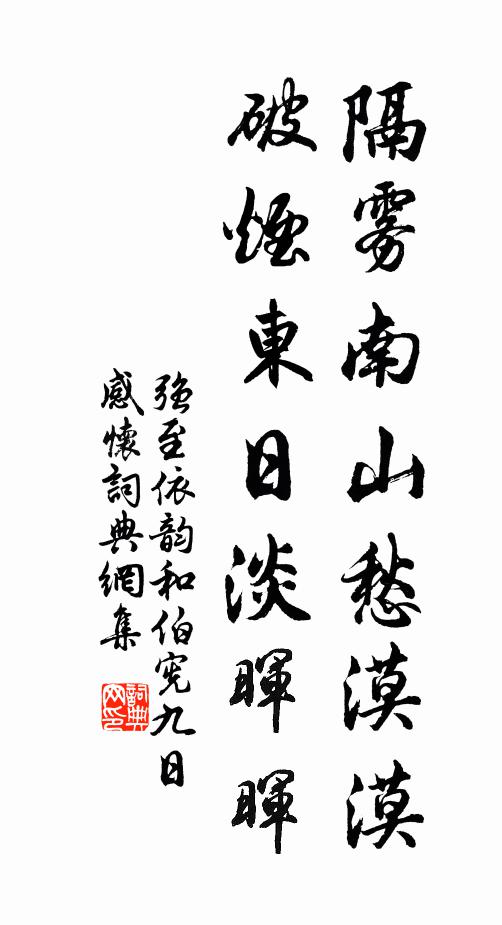 隔雾南山愁漠漠
破煙東日淡暉暉
強至依韵和伯宪九日
感懷詞典網集
詞典网印